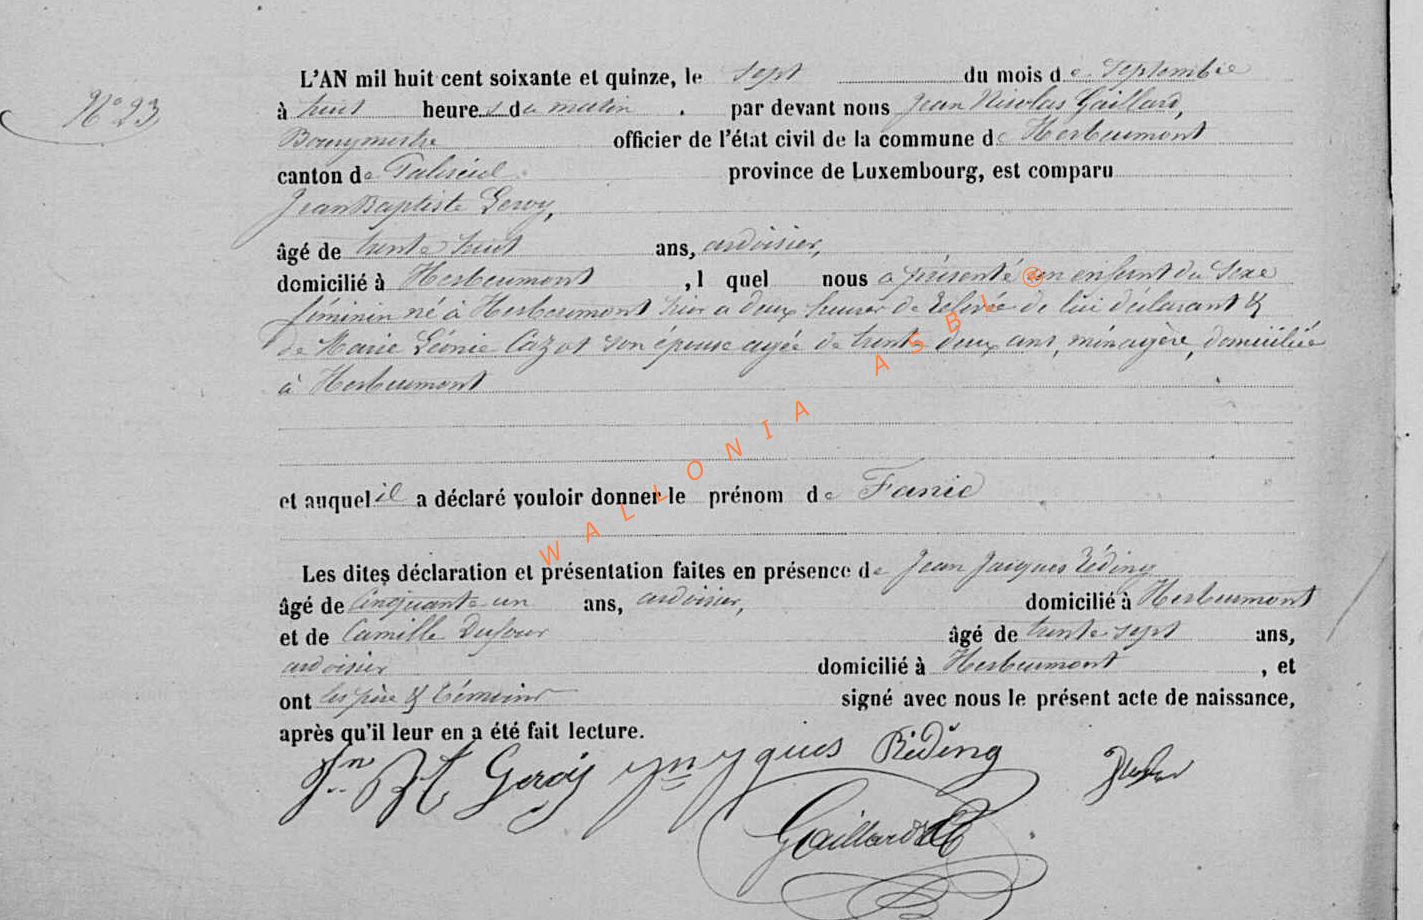 N° 23
L'AN mil huit cent soixante et quinze, le sept du mois de Septembre
à huit heures du matin. par devant nous Jean Nicolas Gaillard,
Bourgmestre officier de l'état civil de la commune de Herbeumont
canton de Paliseul province de Luxembourg, est comparu
Jean Baptiste Geroy,
âgé de trente huit ans, ardoisier,
domicilié à Herbeumont , l quel nous a présenté un enfant du Sexe
féminin né à Herbeumont hier a deux heures de Relevée de lui déclarant &
de Marie Léonie Cazot son épouse agée de trente deux ans, ménagère, domiciliée
à Herbeumont
et auquel il a déclaré vouloir donner le prénom de Fanie
Les dites déclaration et présentation faites en présence de Jean Jacques Réding
âgé de Cinquante-un ans, ardoisier, domicilié à Herbeumont
et de Camille Dufour âgé de trente sept ans,
ardoisier domicilié à Herbeumont , et
ont les père & témoins signé avec nous le présent acte de naissance,
après qu'il leur en a été fait lecture.
Jn Bt Geroy Jn Jques Réding
Gaillard
WALLONIA ASBL ®